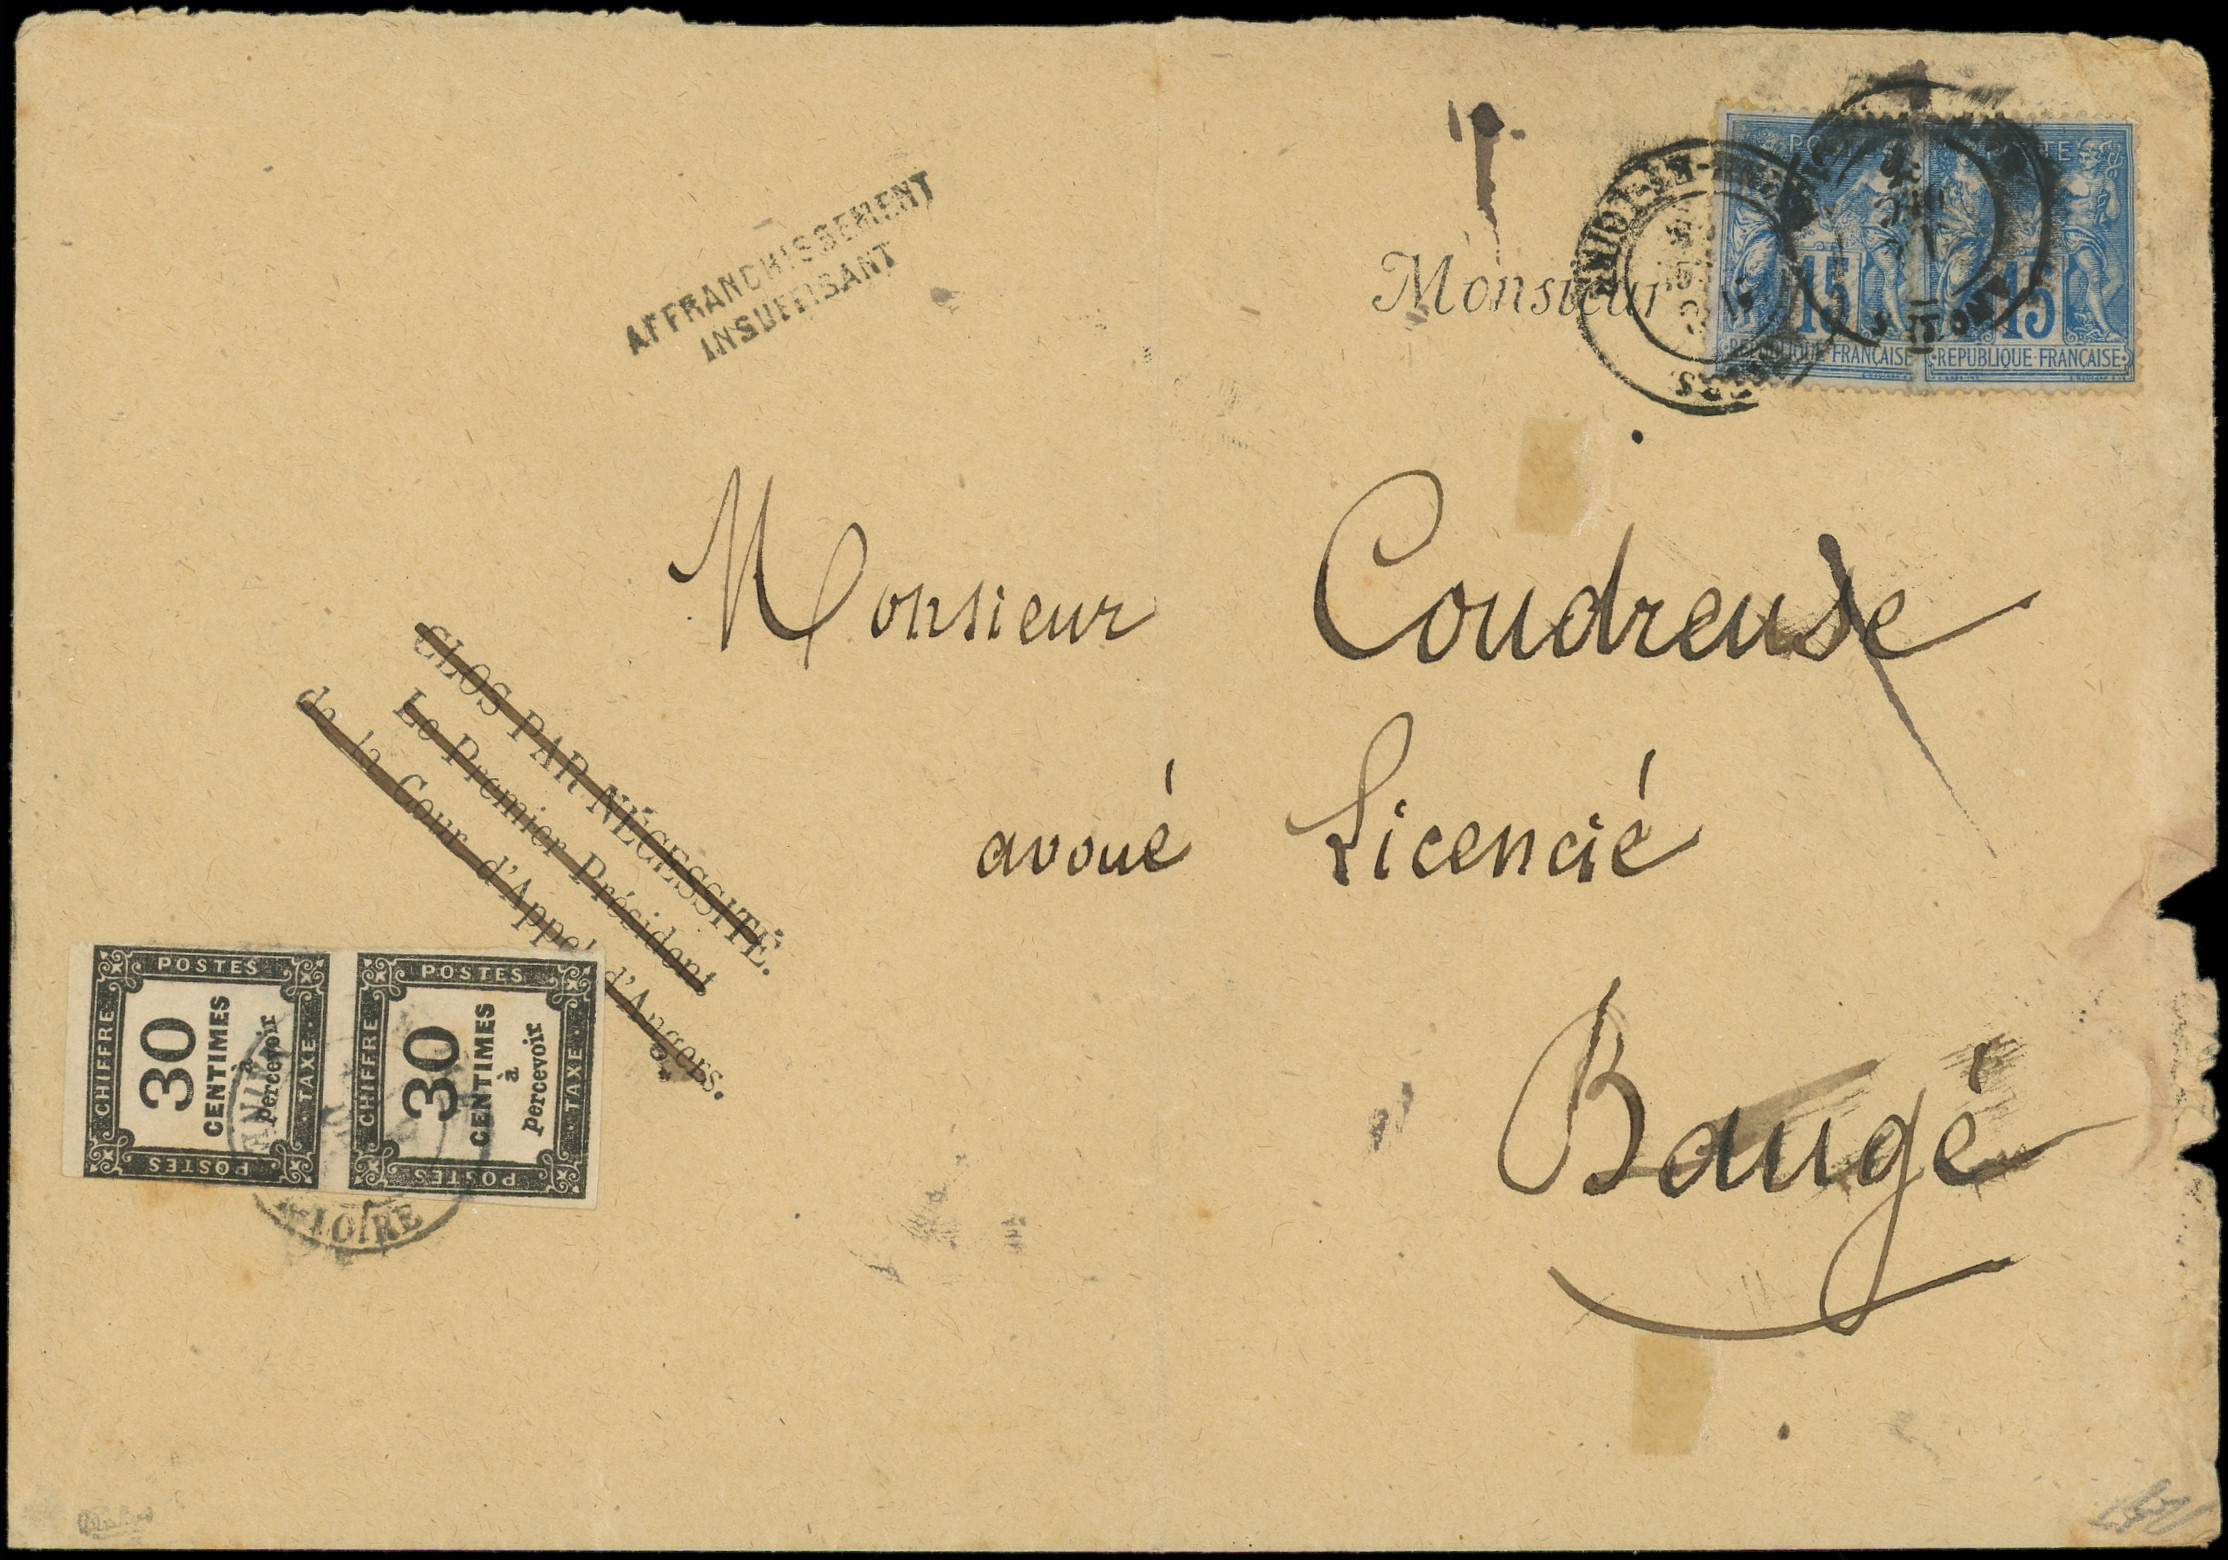 AFFRANCHISSEMENT
INSUFFISANT
Monsieur
POSTE
15
REPUBLIQUE FRANÇAISE
15
REPUBLIQUE FRANÇAISE
Monsieur Coudreuse
avoué Licencié
Baugé
CLOS PAR NÉCESSITÉ.
Le Premier Président
de la Cour d'Appel d'Angers.
POSTES
CHIFFRE
30
CENTIMES
à
percevoir
TAXE
POSTES
POSTES
CHIFFRE
30
CENTIMES
à
percevoir
TAXE
POSTES
LOIRE